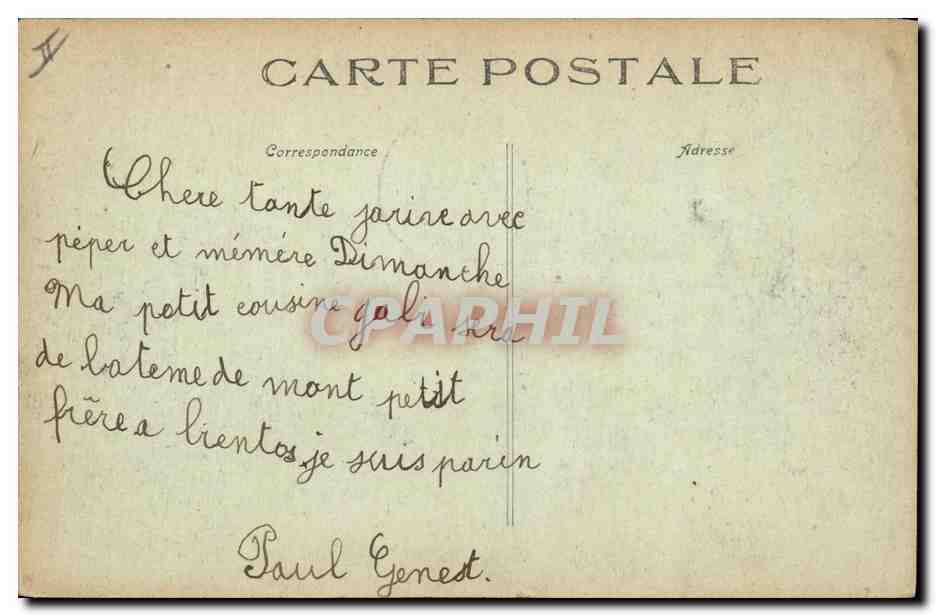 CARTE POSTALE
Correspondance
Adresse
Chere tante jarive avec
péper et mémére Dimanche
Ma potit cousine gabi sra
de bateme de mont petit
frêre a bientos je suis parin
Paul Genest.
CPAPHIL